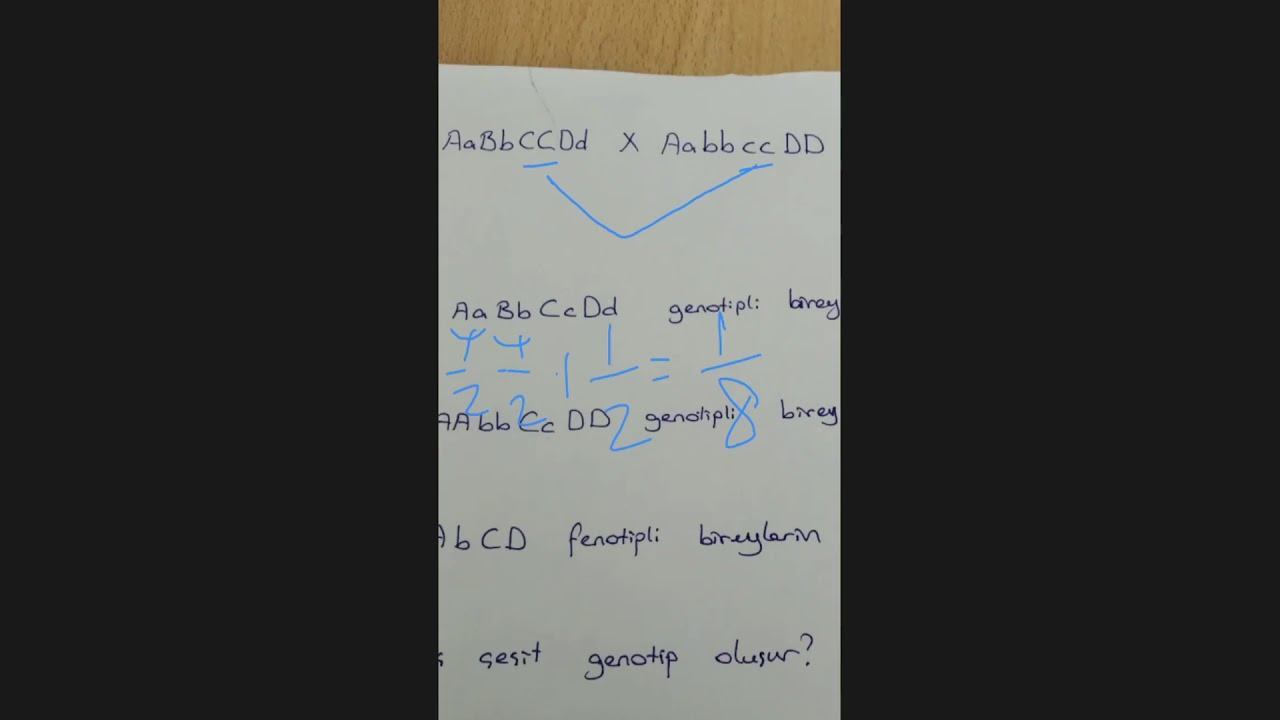 AaBbCCDd X AabbccDD
AaBbCcDd genotipli birey
1 1 1 1
2 2 . 1 2 = 8
AAbbCcDD genotipli birey
AbCD fenotipli bireylerin
çeşit genotip oluşur?